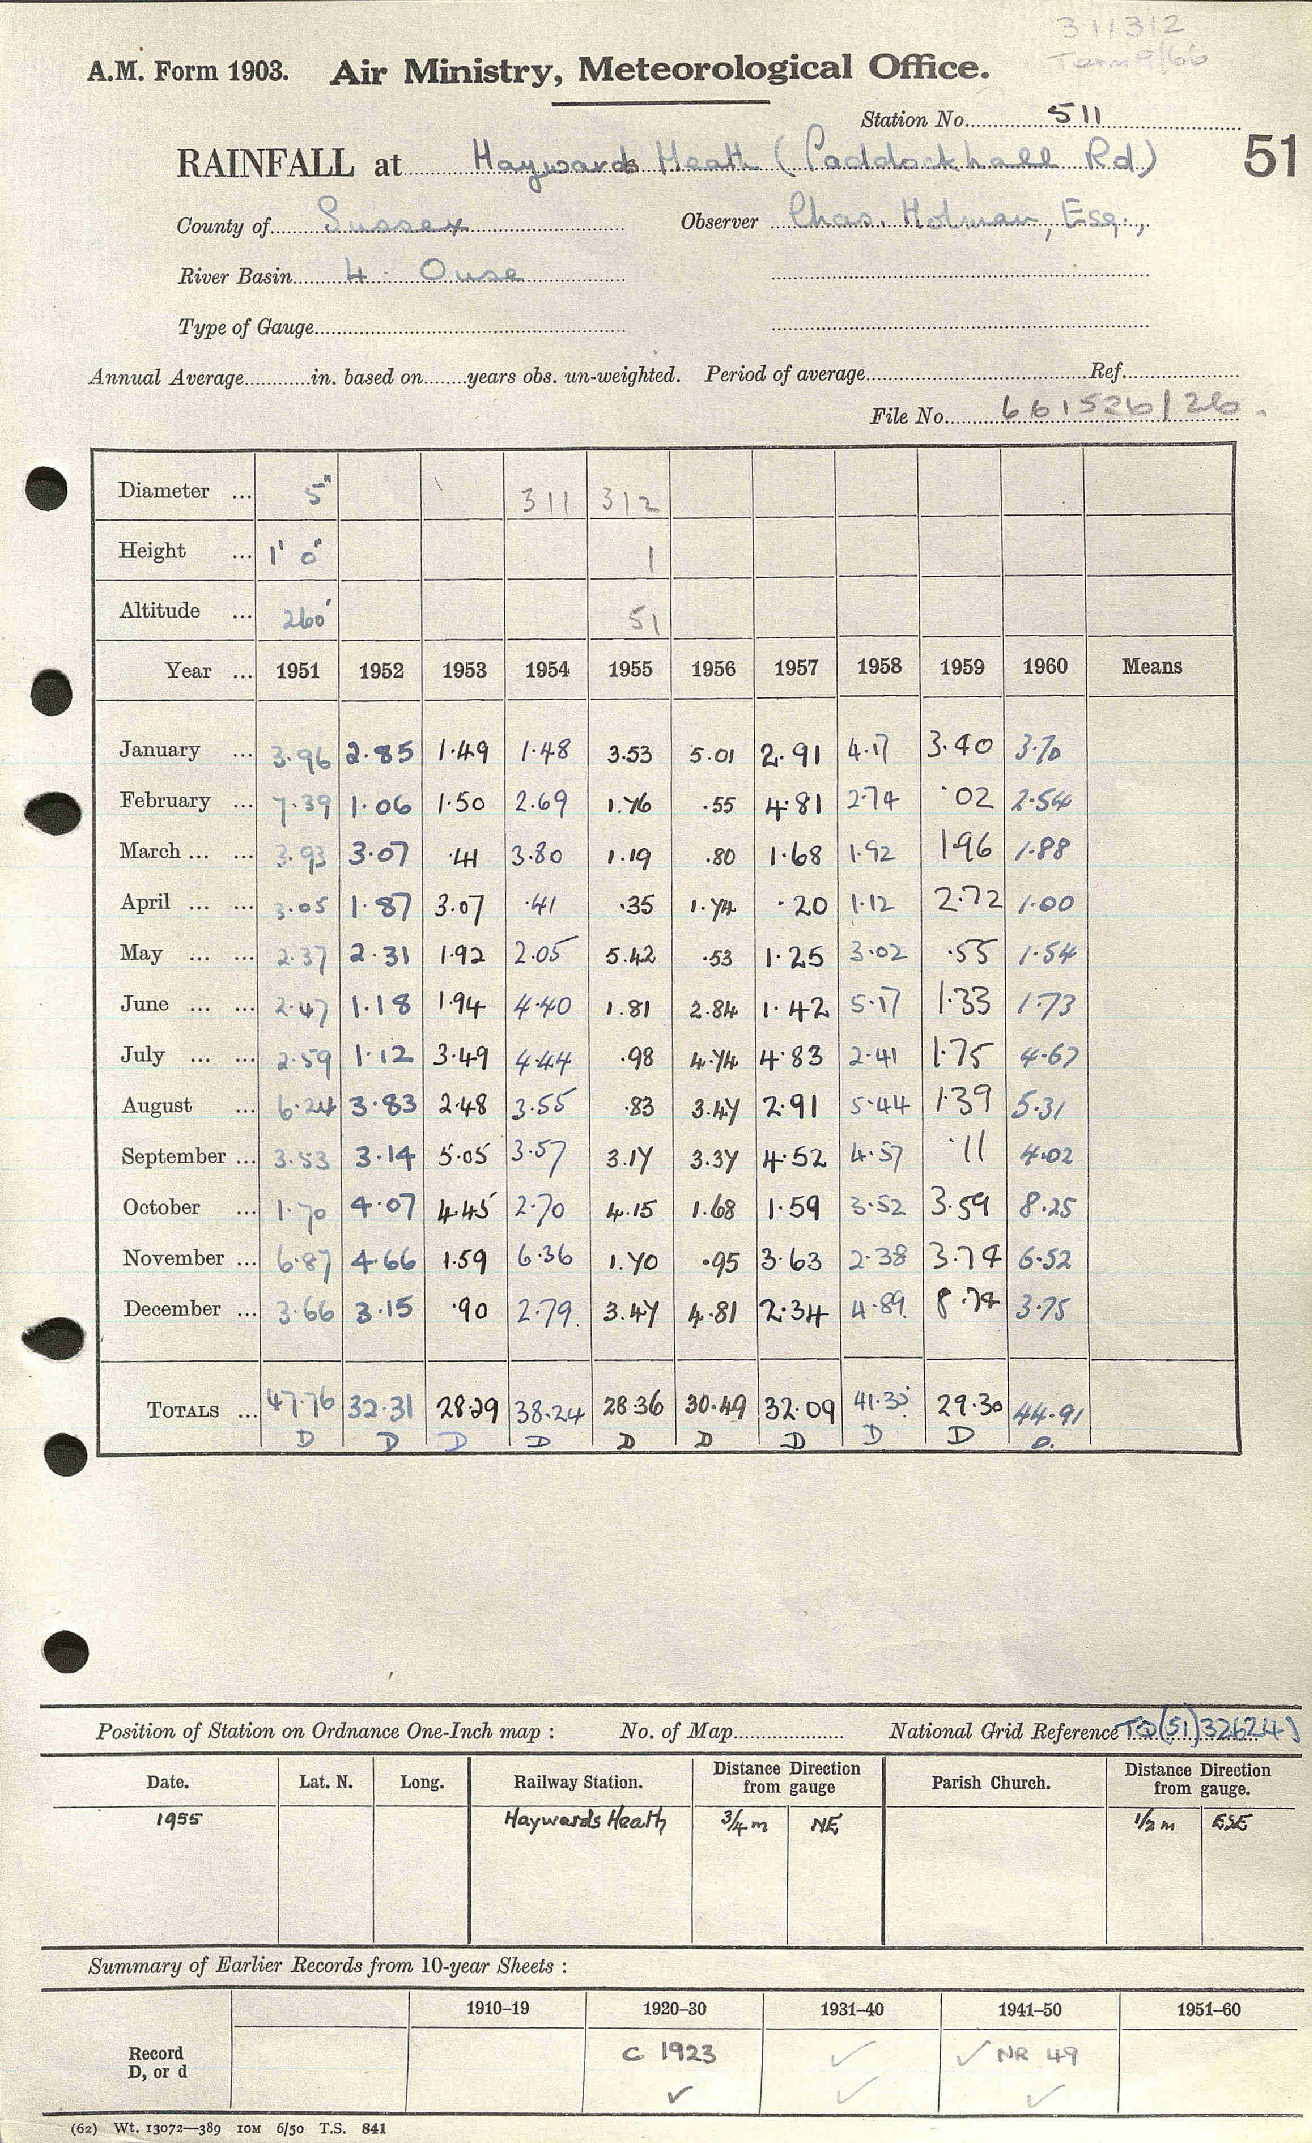 311312
Term 9/66
A.M. Form 1903. Air Ministry, Meteorological Office.
Station No. 511
RAINFALL at Haywards Heath (Paddockhall Rd) 51
County of Sussex Observer Chas. Holman, Esq.,
River Basin 4. Ouse
Type of Gauge
Annual Average in. based on years obs. un-weighted. Period of average Ref.
File No. 661526/26.
Diameter ... 5" 311 312
Height ... 1' 0" 1
Altitude ... 260' 51
Year ... 1951 1952 1953 1954 1955 1956 1957 1958 1959 1960 Means
January ... 3.96 2.85 1.49 1.48 3.53 5.01 2.91 4.17 3.40 3.70
February ... 7.39 1.06 1.50 2.69 1.76 .55 4.81 2.74 .02 2.54
March ... ... 3.93 3.07 .41 3.80 1.19 .80 1.68 1.92 1.96 1.88
April ... ... 3.05 1.87 3.07 .41 .35 1.74 .20 1.12 2.72 1.00
May ... ... 2.37 2.31 1.92 2.05 5.42 .53 1.25 3.02 .55 1.54
June ... ... 2.47 1.18 1.94 4.40 1.81 2.84 1.42 5.17 1.33 1.73
July ... ... 2.59 1.12 3.49 4.44 .98 4.74 4.83 2.41 1.75 4.67
August ... 6.24 3.83 2.48 3.55 .83 3.47 2.91 5.44 1.39 5.31
September ... 3.53 3.14 5.05 3.57 3.17 3.37 4.52 4.57 .11 4.02
October ... 1.70 4.07 4.45 2.70 4.15 1.68 1.59 3.52 3.59 8.25
November ... 6.87 4.66 1.59 6.36 1.70 .95 3.63 2.38 3.74 6.52
December ... 3.66 3.15 .90 2.79. 3.47 4.81 2.34 4.89. 8.74 3.75
TOTALS ... 47.76 32.31 28.29 38.24 28.36 30.49 32.09 41.35 29.30 44.91
D D D D D D D D D D.
Position of Station on Ordnance One-Inch map : No. of Map National Grid Reference TQ(51)326241
Date. Lat. N. Long. Railway Station. Distance Direction from gauge Parish Church. Distance Direction from gauge.
1955 Haywards Heath 3/4 m NE 1/2 m ESE
Summary of Earlier Records from 10-year Sheets :
1910–19 1920–30 1931–40 1941–50 1951–60
Record D, or d C 1923 ✓ ✓ NR 49
✓ ✓ ✓
(62) Wt. 13072—389 10M 6/50 T.S. 841